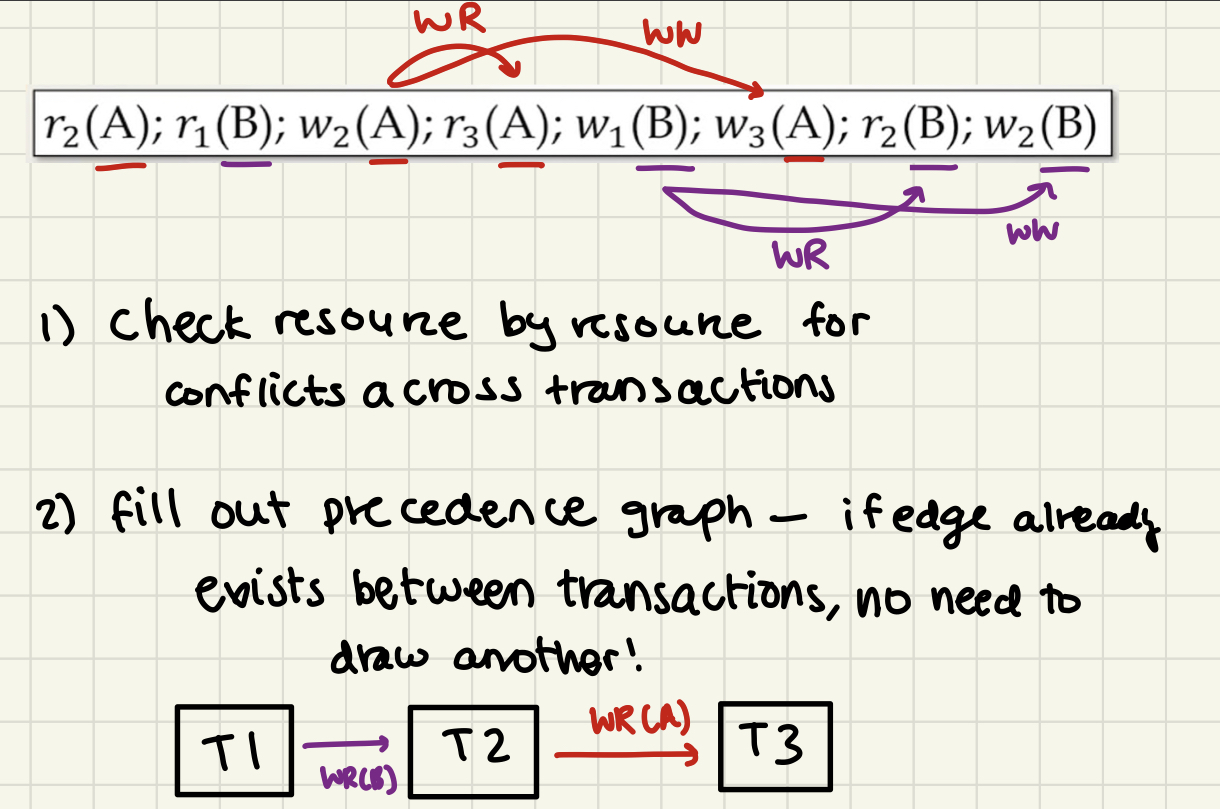 WR WW
r₂(A); r₁(B); w₂(A); r₃(A); w₁(B); w₃(A); r₂(B); w₂(B)
WR WW
1) Check resource by resource for
conflicts across transactions
2) fill out precedence graph — if edge already
exists between transactions, no need to
draw another!
T1 WR(B) T2 WR(A) T3